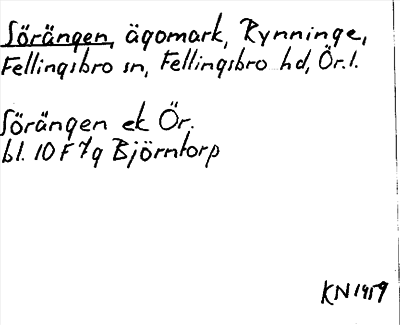 Sörängen, ägomark, Rynninge,
Fellingsbro sn, Fellingsbro hd, Ör.l.
Sörängen ek Ör.
bl. 10 F 7g Björntorp
KN 1959